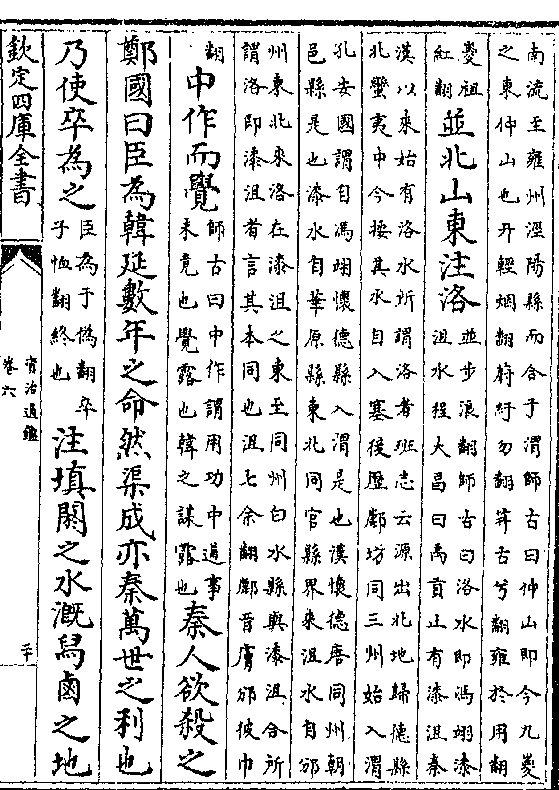 南流至雍州涇陽縣而合于渭師古曰仲山即今九嵏
之東仲山也幵輕烟翻蔚紆勿翻幷古兮翻雍於用翻
嵏祖
紅翻
並北山東注洛
並步浪翻師古曰洛水即馮翊漆
沮水程大昌曰禹貢止有漆沮秦
漢以來始有洛水所謂洛者班志云源出北地歸德縣
北蠻夷中今按其水自入塞後歷鄜坊同三州始入渭
孔安國謂自馮翊懷德縣入渭是也漢懷德唐同州朝
邑縣是也漆水自華原縣東北同官縣界來沮水自邠
州東北來洛在漆沮之東至同州白水縣與漆沮合所
謂洛即漆沮者言其本同也沮七余翻鄜音膚邠彼巾
翻
中作而覺
師古曰中作謂用功中道事
未竟也覺露也韓之謀露也
秦人欲殺之
鄭國曰臣為韓延數年之命然渠成亦秦萬世之利也
乃使卒為之
臣為于偽翻卒
子恤翻終也
注填閼之水溉舄鹵之地
欽定四庫全書
資治通鑑
卷六
二十